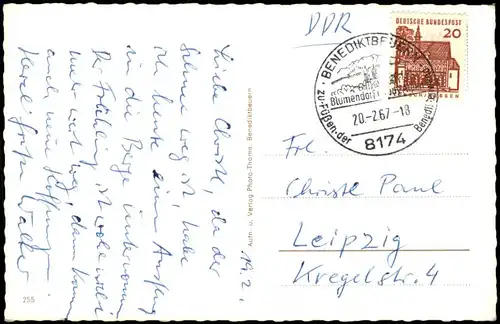 DDR
BENEDIKTBEUERN
Blumendorf
zu-Füßen-der
20.-2.67-18
8174
DEUTSCHE BUNDESPOST
20
19.2.
Liebe Christl, da der
Schnee weg ist habe
ich heute einen Ausflug
in die Berge unternommen
Der Frühling ist
weg, dann
auch
Herzl. Grüße Walter
Aufn. u. Verlag Photo-Thoma, Benediktbeuern
255
Frl.
Christl Paul
Leipzig
Kregelstr. 4